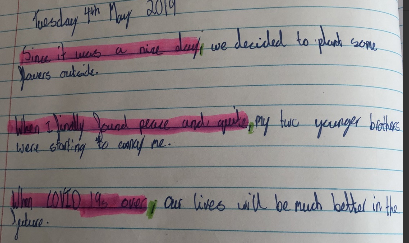 Tuesday 4th May 2019
Since it was a nice day, we decided to plant some
flowers outside.
When I finally found peace and quite, my two younger brothers
were starting to annoy me.
When COVID 19s over, our lives will be much better in the
future.